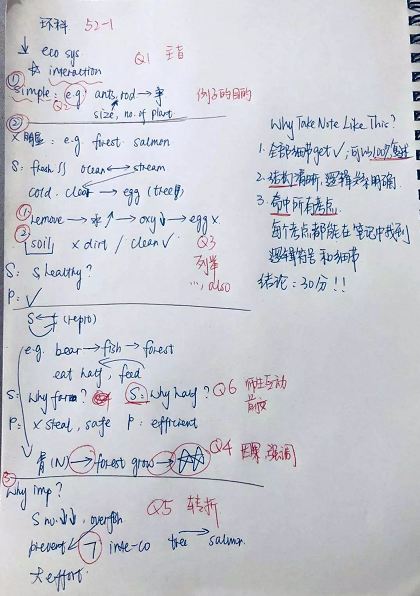 环科 52-1
↓ eco sys.
☆ interaction Q1 主旨
① simple: e.g. ants, rod → 争 例子的目的
Q2 size, no. of plant
②
X明显: e.g. forest. salmon
S: fresh 以 ocean ← → stream
cold. clear → egg (tree)
① remove → 水 ↑ → oxy↓ → egg x
② soil x dirt / clean ✓ Q3
列举
S: S healthy? ..., also
P: ✓
S (repro)
e.g. bear → fish → forest
eat half, feed
S: why far? S: why half? Q6 师生互动
P: X steal, safe P: efficient
青(N) → forest grow → ☆☆ Q4 因果 强调
③ Why imp?
S no.↓↓, overfish Q5 转折
prevent inte-co tree → salmon.
大effort.
Why Take Note Like This?
1. 全部细节get ✓; 可以100%复述
2. 结构清晰, 逻辑关系明确
3. 命中所有考点
每个考点都能在笔记中找到
逻辑符号和细节
结论: 30分!!